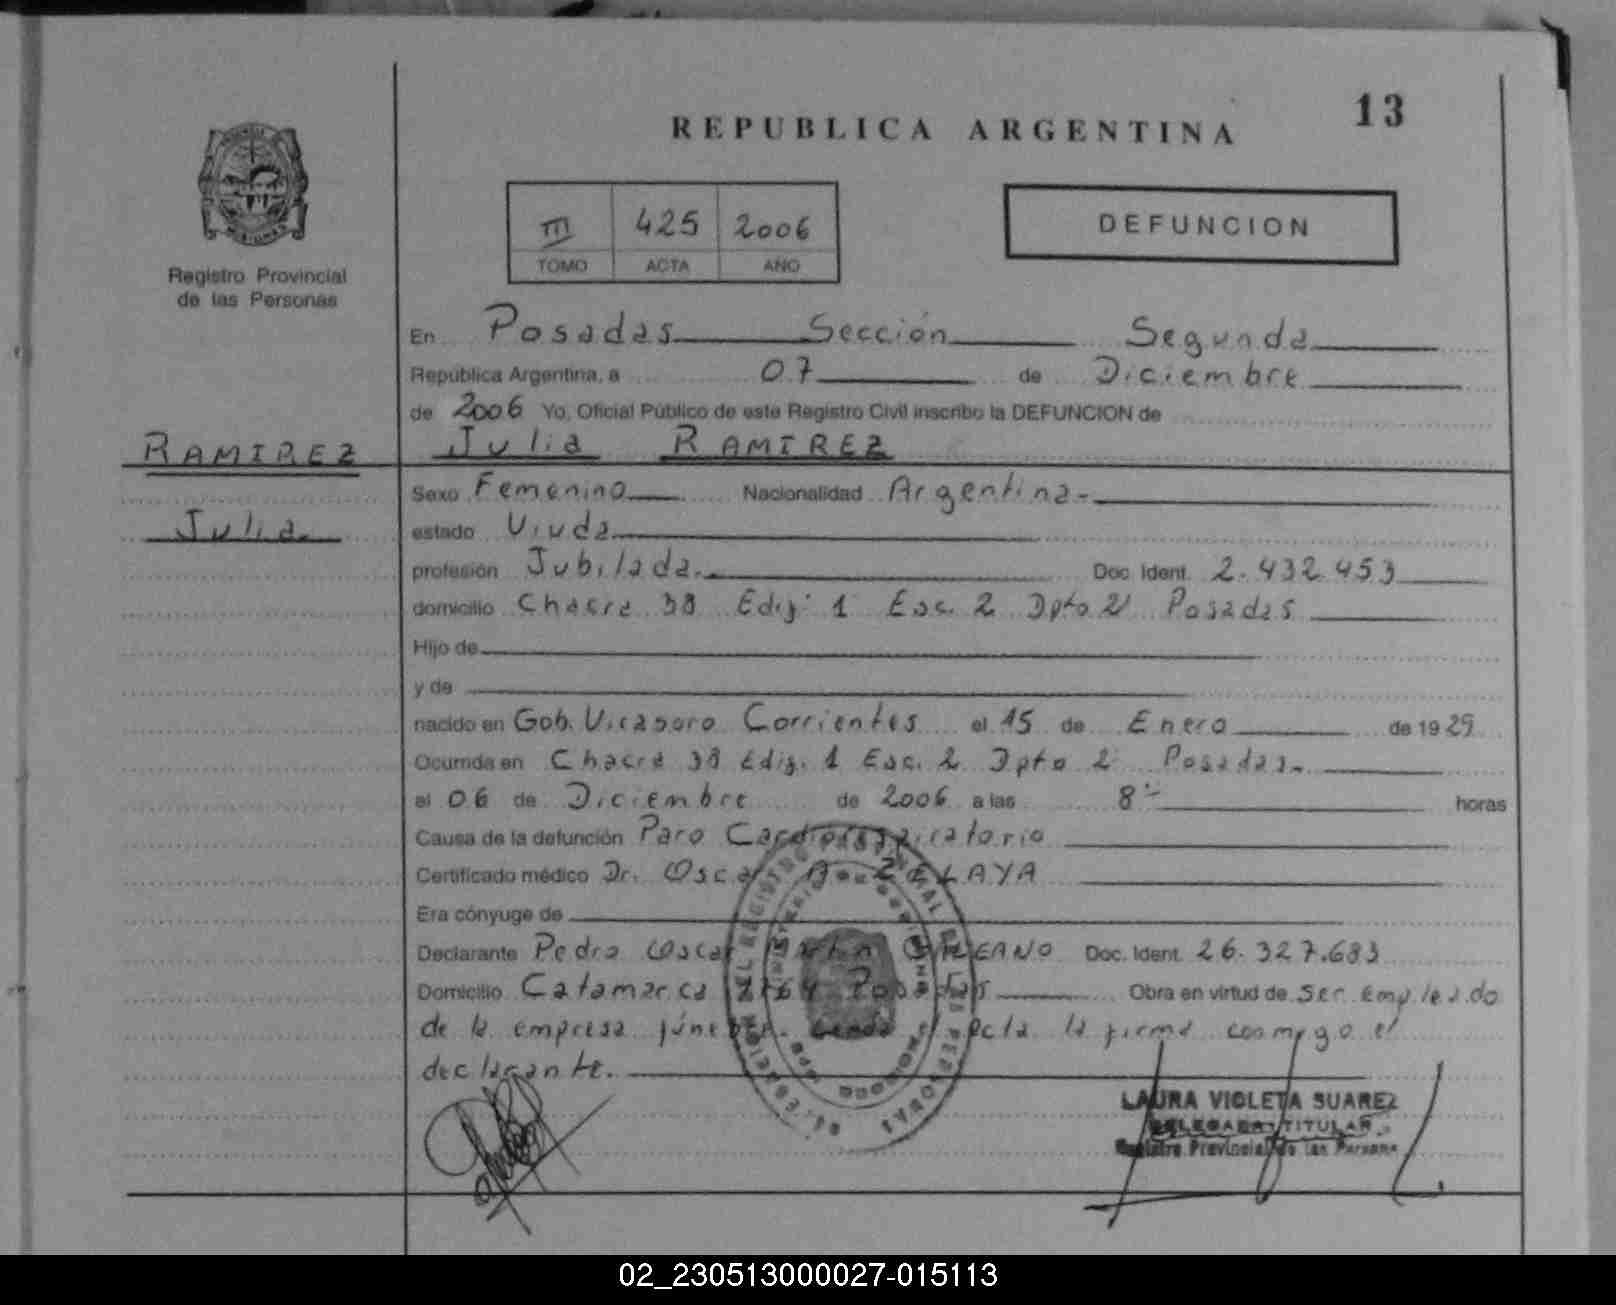 13
REPUBLICA ARGENTINA
III 425 2006
TOMO ACTA AÑO
DEFUNCION
Registro Provincial
de las Personas
En Posadas Sección Segunda
República Argentina, a 07 de Diciembre
de 2006 Yo, Oficial Público de este Registro Civil inscribo la DEFUNCION de
RAMIREZ Julia RAMIREZ
Sexo Femenino Nacionalidad Argentina-
Julia
estado Viuda
profesión Jubilada. Doc. Ident. 2.432.453
domicilio Chacra 38 Edif. 1 Esc. 2 Dpto 2 Posadas
Hijo de
y de
nacido en Gob. Virasoro Corrientes el 15 de Enero de 1929
Ocurrida en Chacra 38 Edif. 1 Esc. 2 Dpto 2 Posadas-
el 06 de Diciembre de 2006 a las 8 horas
Causa de la defunción Paro Cardiorespiratorio
Certificado médico Dr. Oscar A. ZELAYA
Era cónyuge de
Declarante Pedro Oscar Doc. Ident. 26.327.683
Domicilio Catamarca Posadas Obra en virtud de ser empleado
de la empresa fúnebre. acta la firma conmigo el
declarante.
LAURA VIOLETA SUAREZ
DELEGADA TITULAR
Registro Provincial de las Personas
02_230513000027-015113